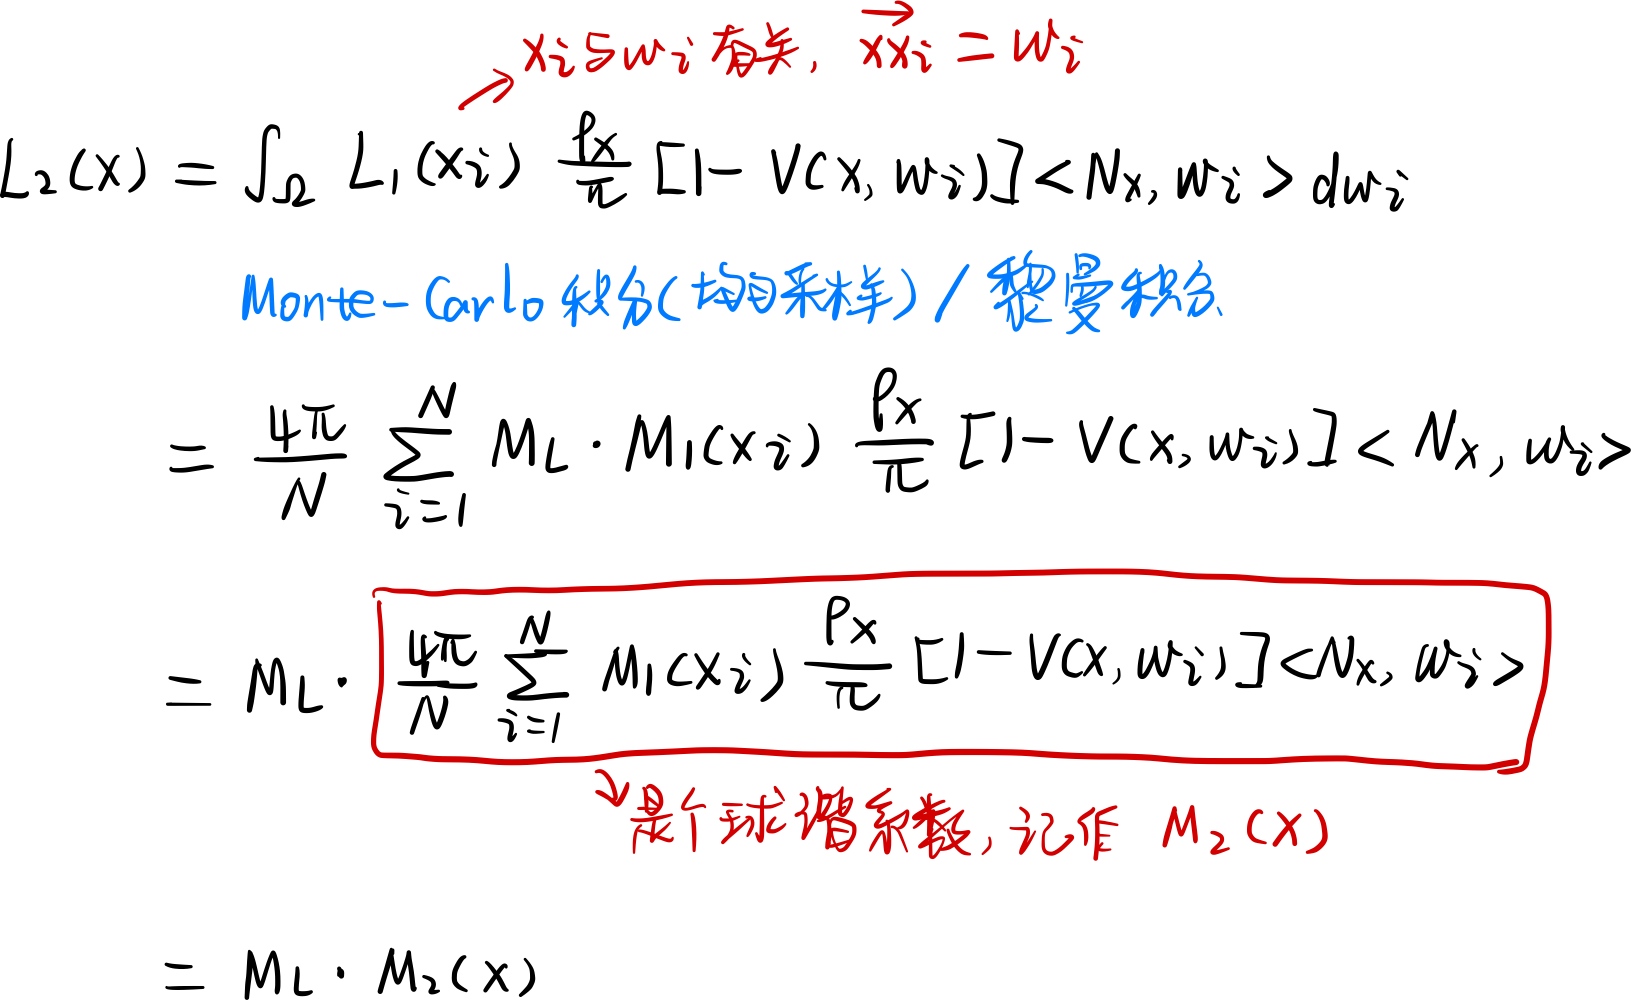 xᵢ与wᵢ有关, \overrightarrow{xxᵢ} = wᵢ
L₂(x) = ∫_Ω L₁(xᵢ) \frac{ρₓ}{π} [1 - V(x, wᵢ)] <Nₓ, wᵢ> dwᵢ
Monte-Carlo 积分(均匀采样) / 黎曼积分
= \frac{4π}{N} \sum_{i=1}^{N} M_L · M₁(xᵢ) \frac{ρₓ}{π} [1 - V(x, wᵢ)] <Nₓ, wᵢ>
= M_L · \frac{4π}{N} \sum_{i=1}^{N} M₁(xᵢ) \frac{ρₓ}{π} [1 - V(x, wᵢ)] <Nₓ, wᵢ>
是个球谐系数, 记作 M₂(x)
= M_L · M₂(x)